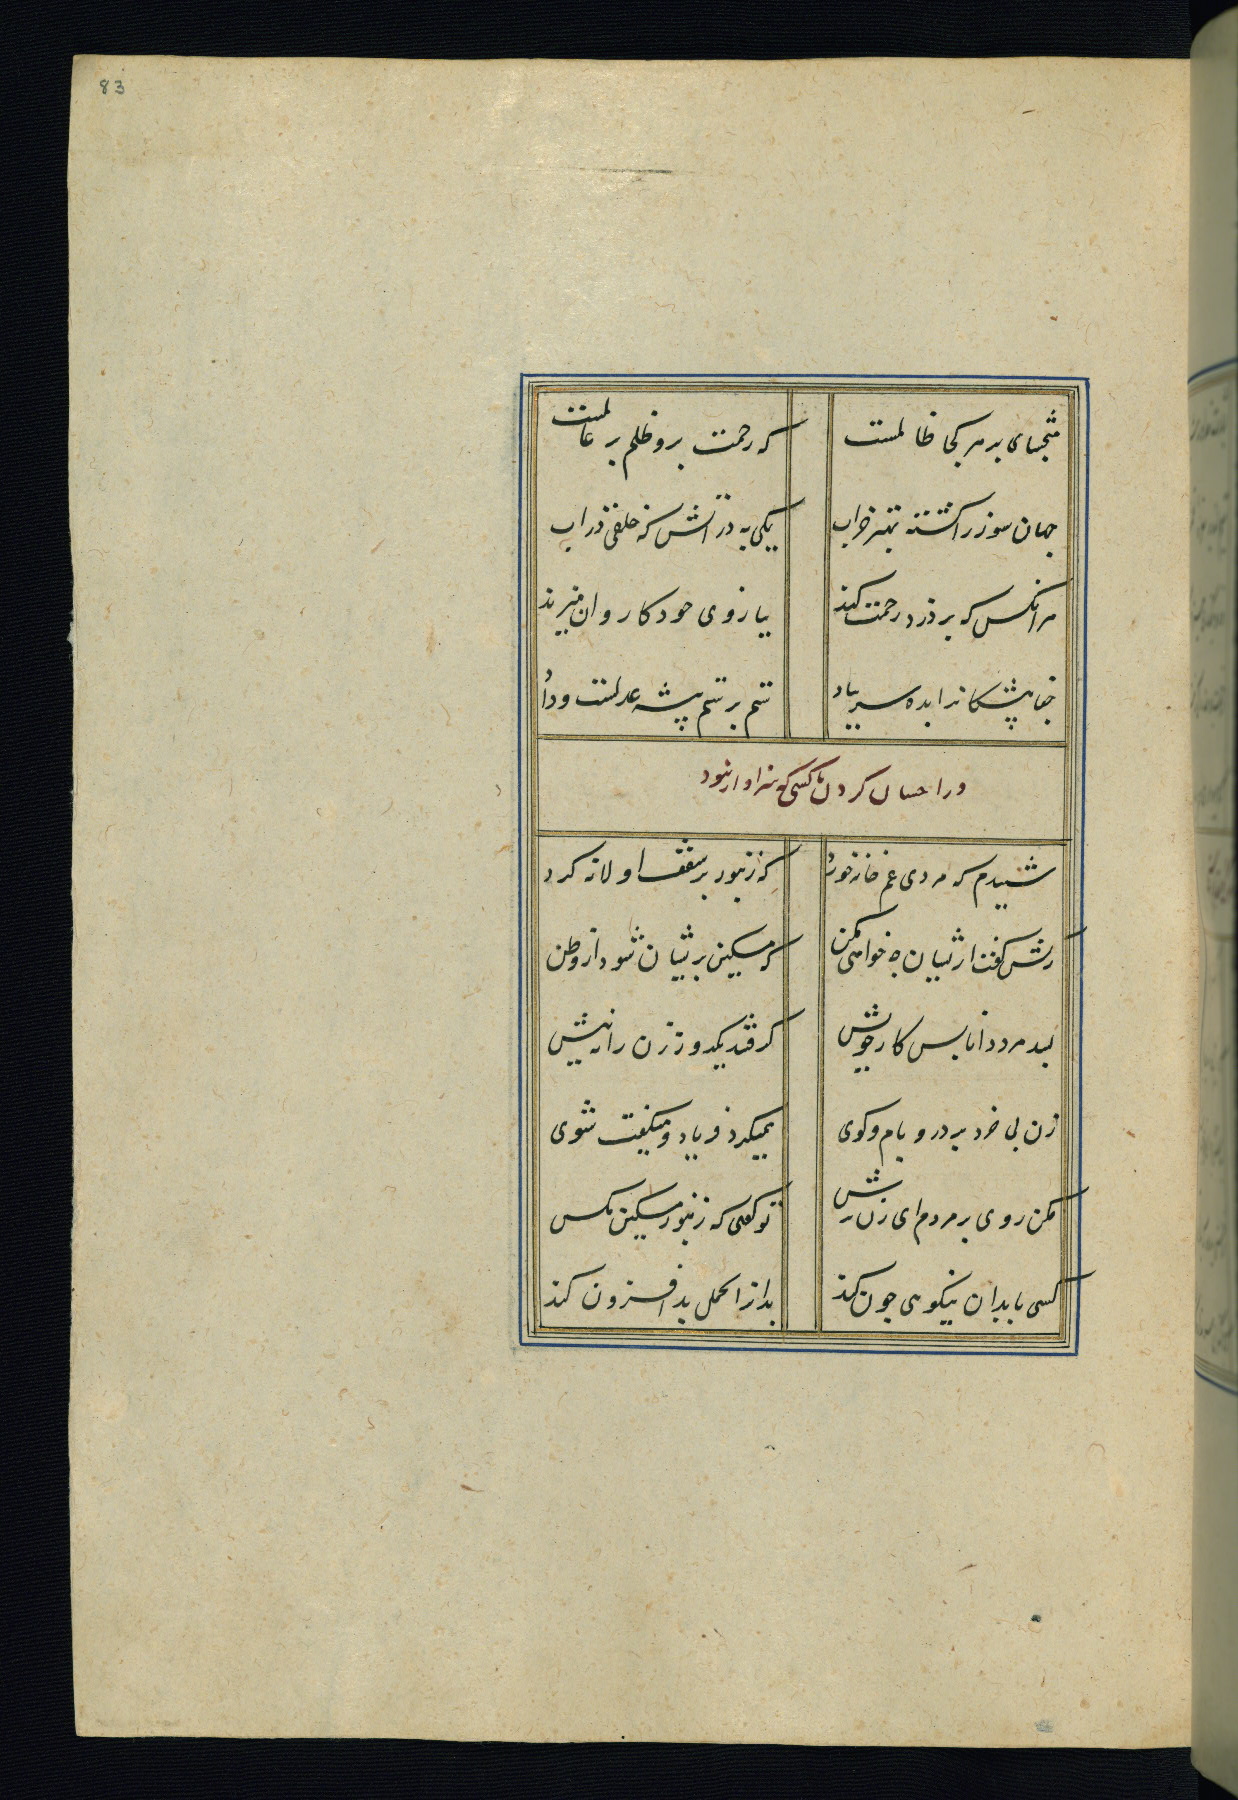 83
مبخشای بر هر کجا ظالمست
که رحمت برو ظلم بر عالمست
جهان سوز را کشته بهتر خراب
یکی به در آتش که خلقی در آب
هر آنکس که بر دزد رحمت کند
ببازوی خود کاروان میزند
جفا پیشکانرا بده سر بباد
ستم بر ستم پیشه عدلست و داد
در احسان کردن با کسی که سزاوار نبود
شنیدم که مردی غم خانه خورد
که زنبور بر سقف او لانه کرد
زنش گفت ازیشان چه خواهی مکن
که مسکین پریشان شود از وطن
بشد مرد دانا پس کار خویش
گرفتند یکروز زن را بنیش
زن بی خرد بر در و بام و کوی
همیکرد فریاد و میگفت شوی
مکن روی بر مردم ای زن ترش
تو گفتی که زنبور مسکین مکش
کسی با بدان نیکوی چون کند
بدانرا تحمل بد افزون کند